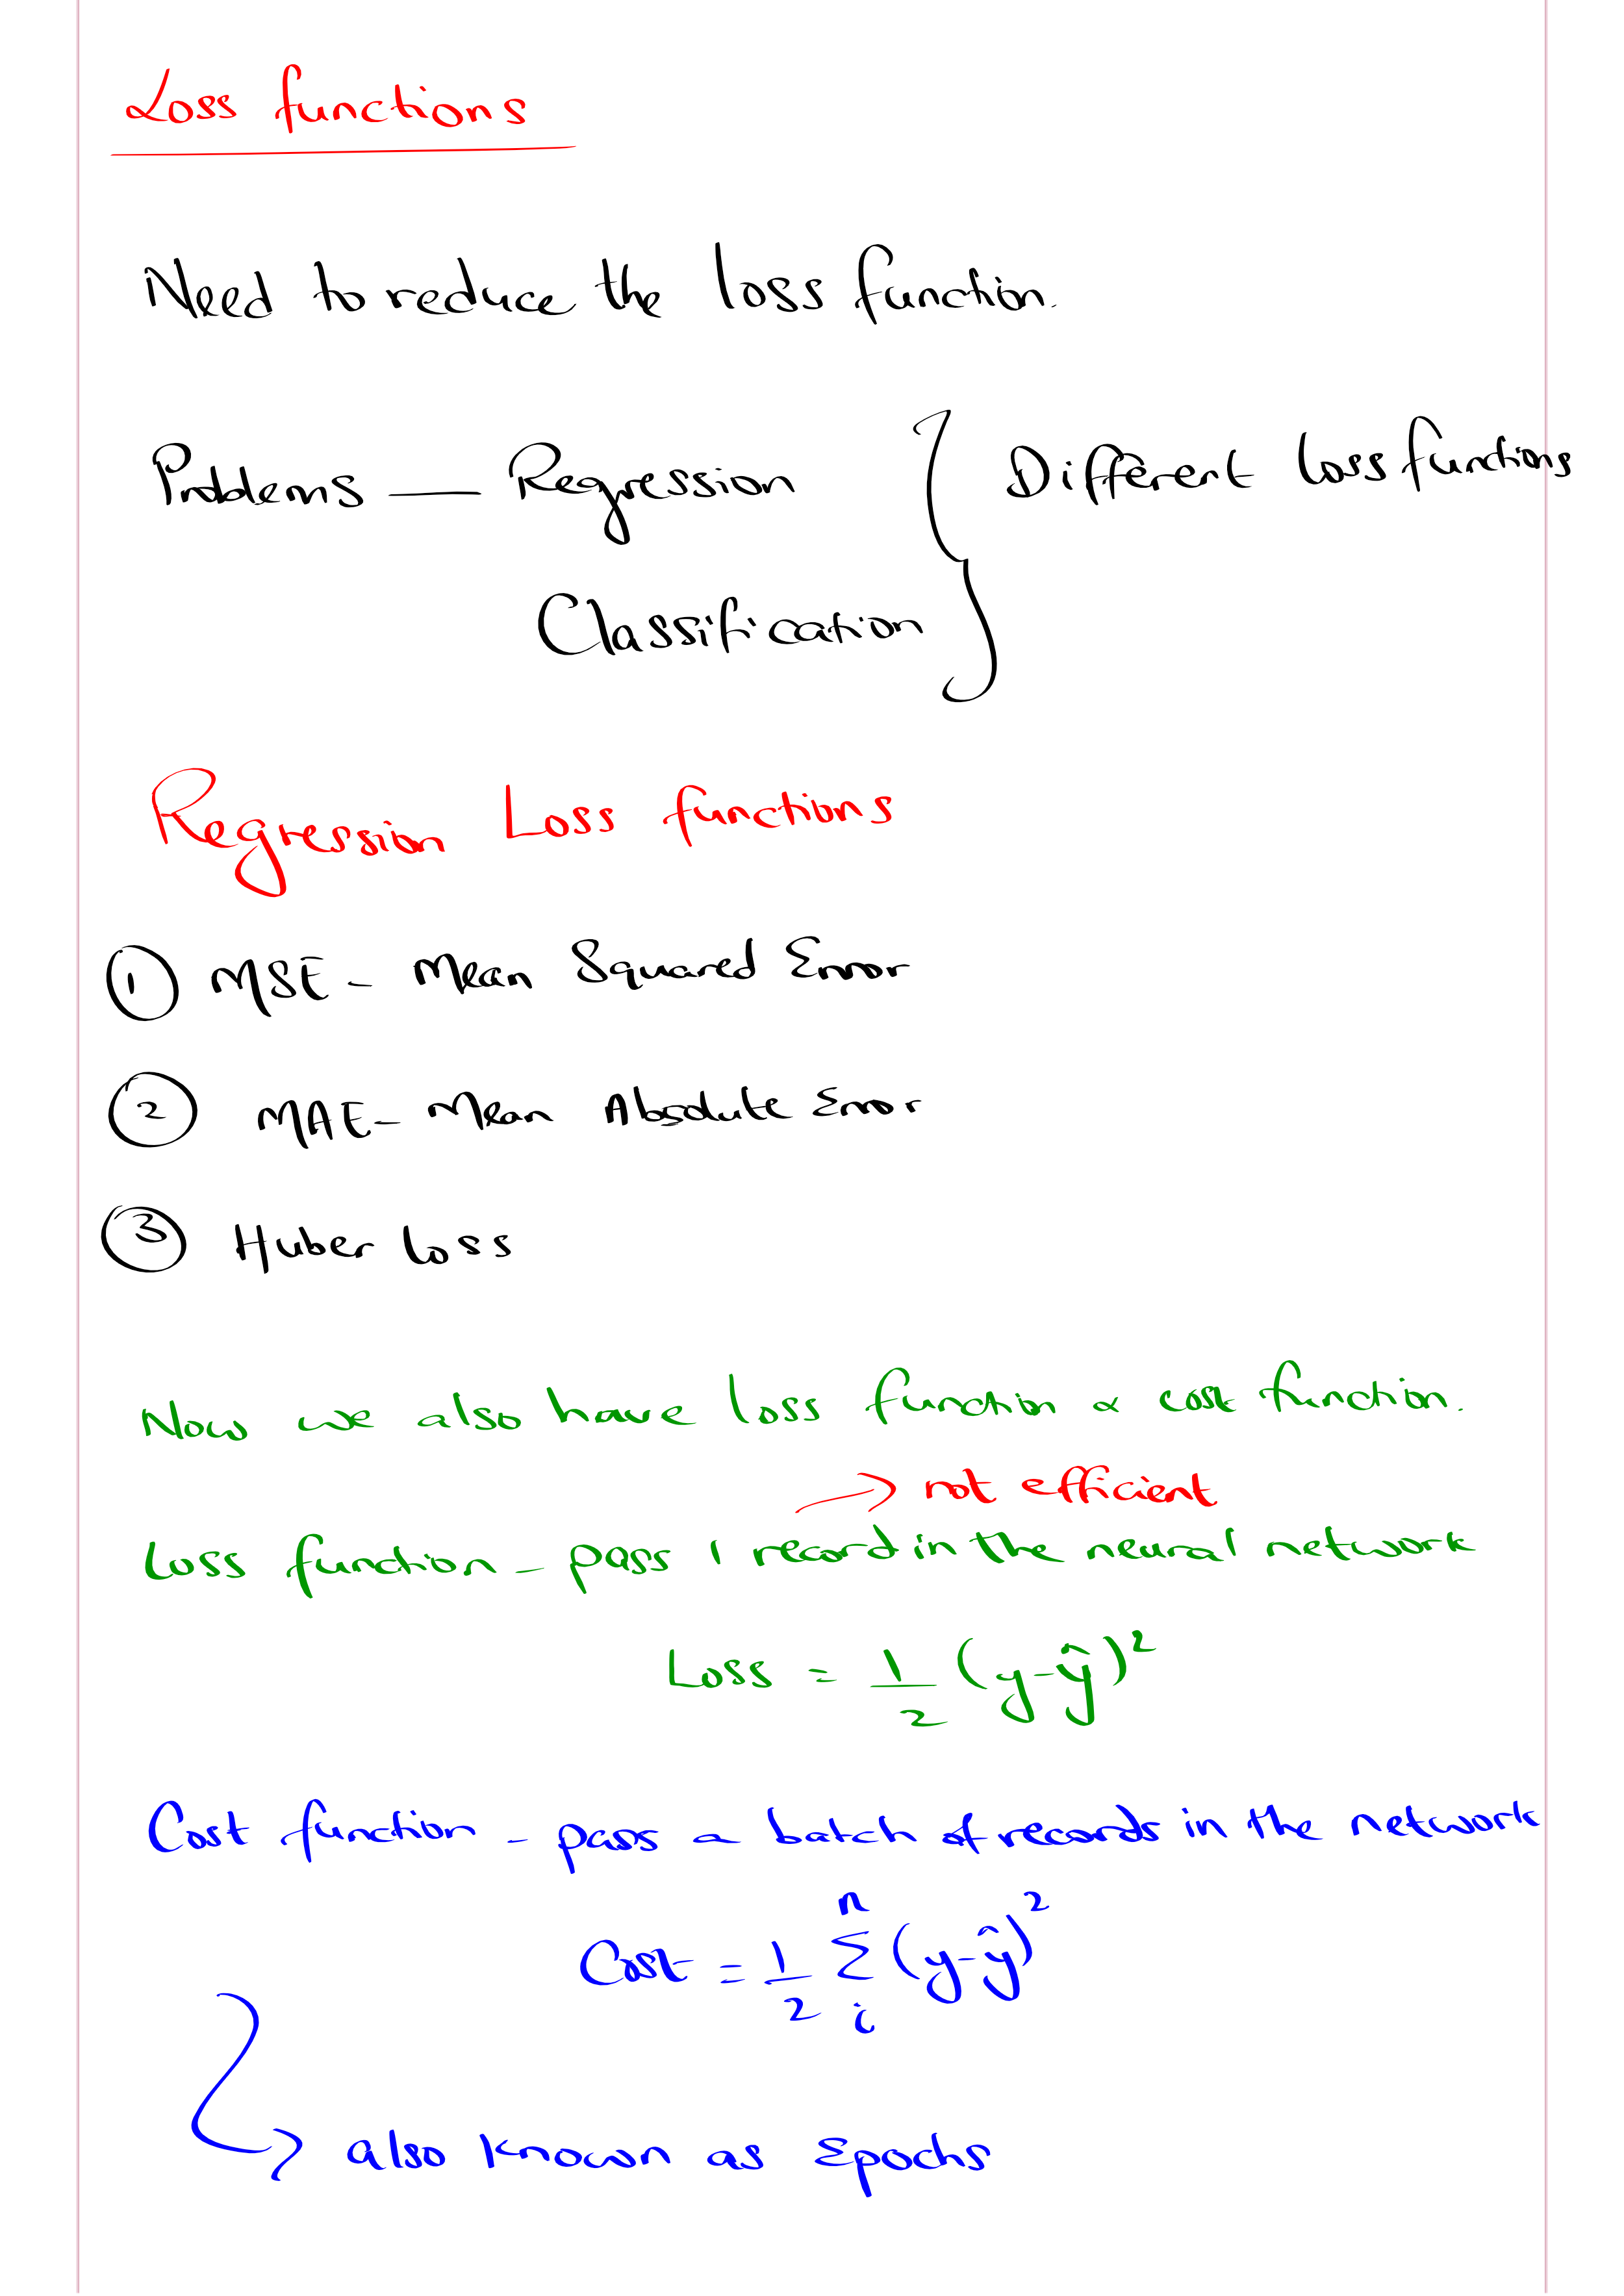 Loss functions
Need to reduce the loss function.
Problems — Regression } Different loss functions
Classification
Regression Loss functions
① MSE - Mean Squared Error
② MAE - Mean Absolute Error
③ Huber loss
Now we also have loss function & cost function.
→ not efficient
Loss function - pass 1 record in the neural network
Loss = 1/2 (y-ŷ)²
Cost function - pass a batch of records in the network
Cost = 1/2 Σ_i^n (y-ŷ)²
→ also known as Epochs